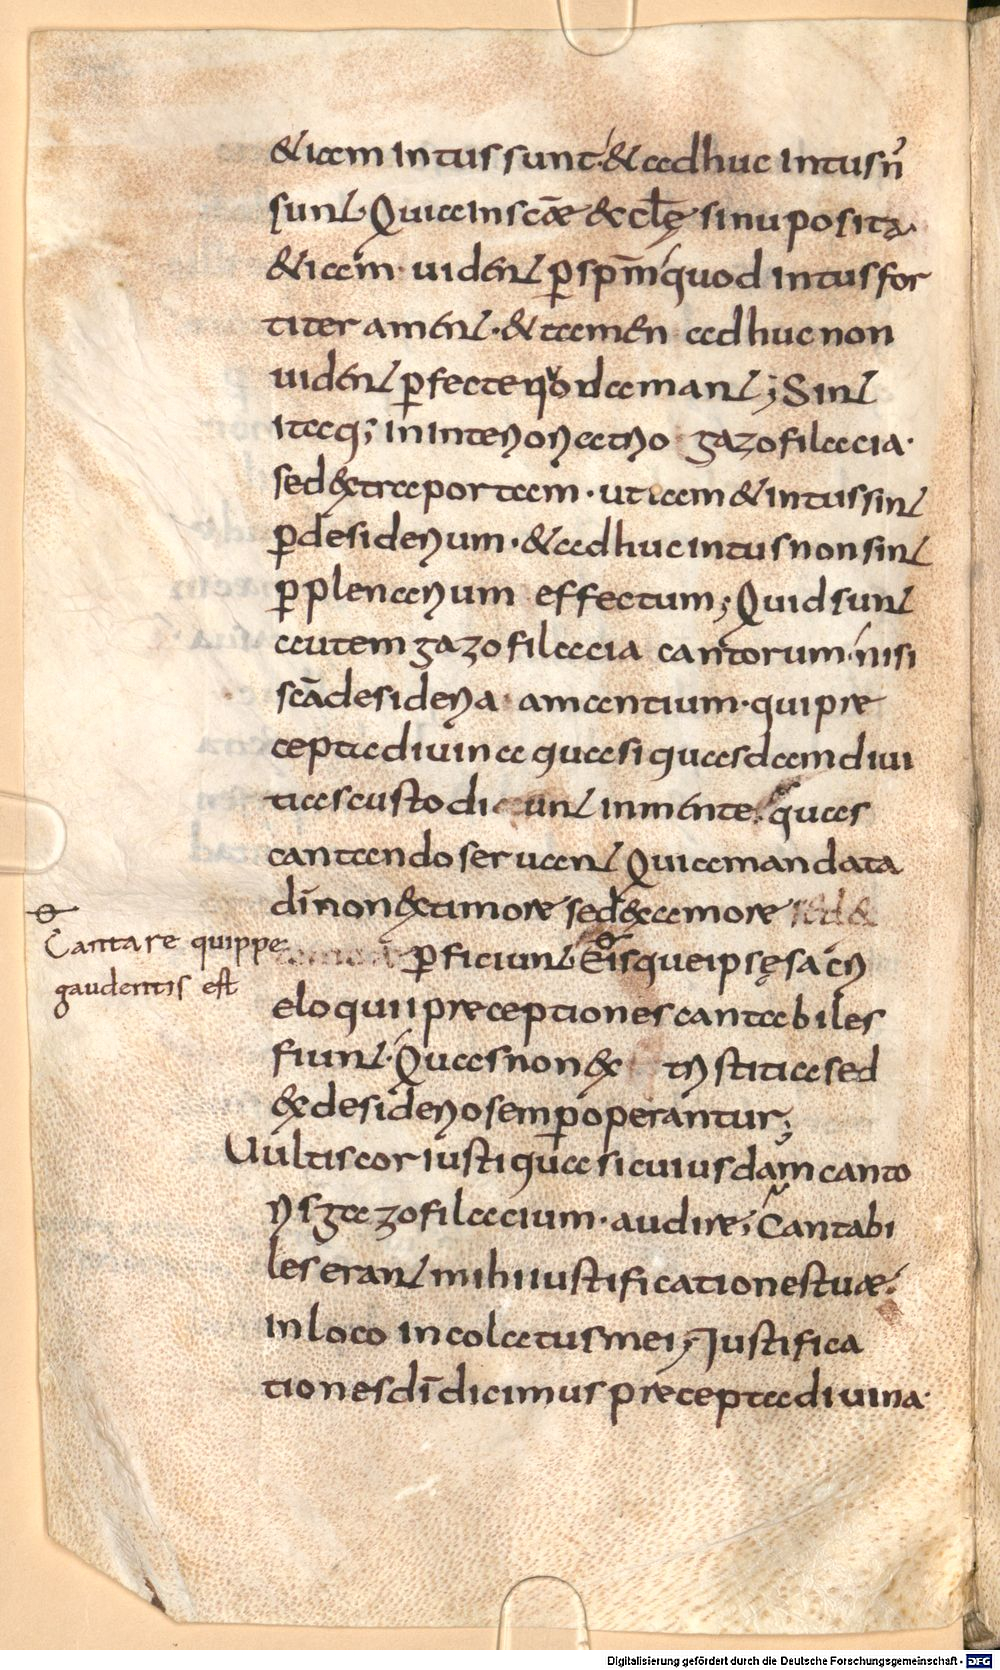 & iam intus sunt· & adhuc intus ñ
sunt· Quia in scǣ & eclę sinu posita·
& iam· uident ꝑ spm̄ quod intus for
titer ament·& tamen adhuc non
uident ꝑfecte quod amant; Sint
itaq; in interiori atrio gazofilacia·
sed extra portam· ut iam & intus sint
ꝑ desiderium·& adhuc intus non sint
ꝑ plenarium effectum; Quid sunt
autem gazofilacia cantorum· nisi
scā desideria amantium· qui præ
cepta diuina quasi quasdam diui
tias custodiunt in mente· quas
cantando seruant· Qui mandata
dī non ex timore sed ex amore
Cantare quippe
gaudentis est
ꝑficiunt· Eis que ipsę sacri
eloquii præceptiones cantabiles
fiunt· Quas non ex tristitia sed
ex desiderio semꝑ operantur;
Uultis cor iusti quasi cuiusdam canto
ris gazofilacium· audire; Cantabi
les erant mihi iustificationes tuæ·
in loco incolatus mei; Iustifica
tiones dī dicimus præcepta diuina·
Digitalisierung gefördert durch die Deutsche Forschungsgemeinschaft - DFG